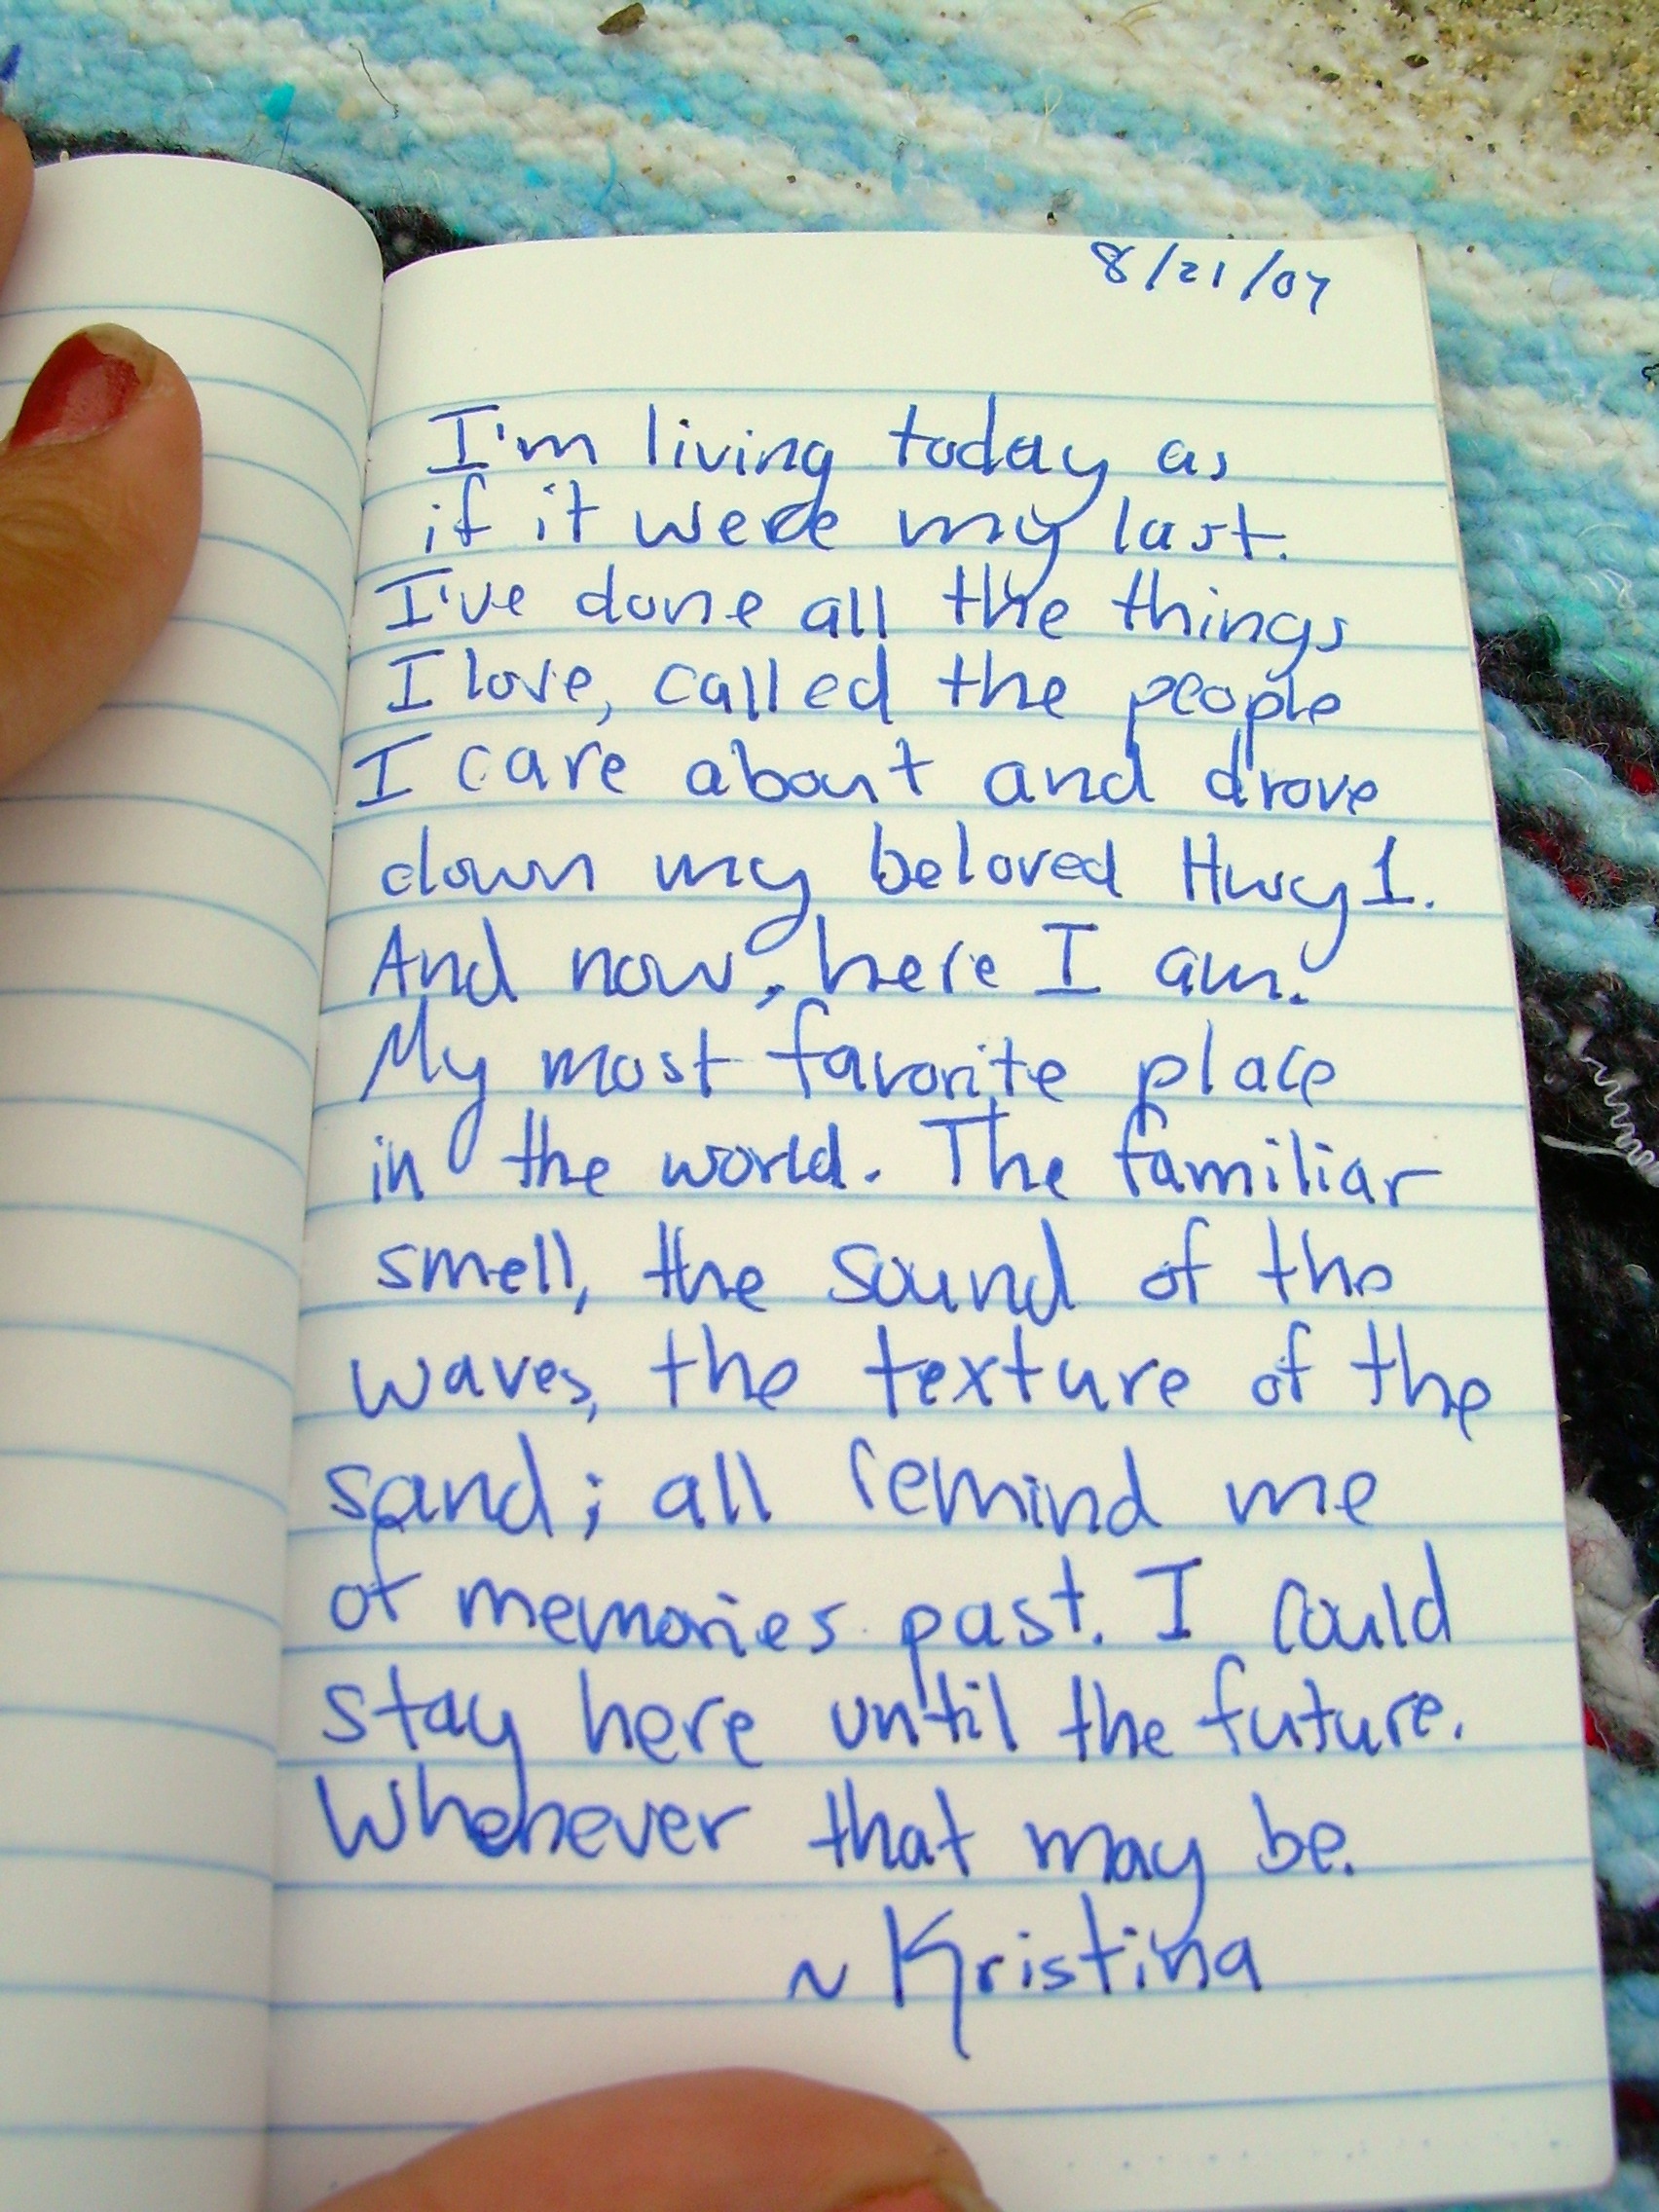 8/21/07
I'm living today as
if it were my last.
I've done all the things
I love, called the people
I care about and drove
down my beloved Hwy 1.
And now, here I am.
My most favorite place
in the world. The familiar
smell, the sound of the
waves, the texture of the
sand; all remind me
of memories past. I could
stay here until the future.
Whenever that may be.
~ Kristina